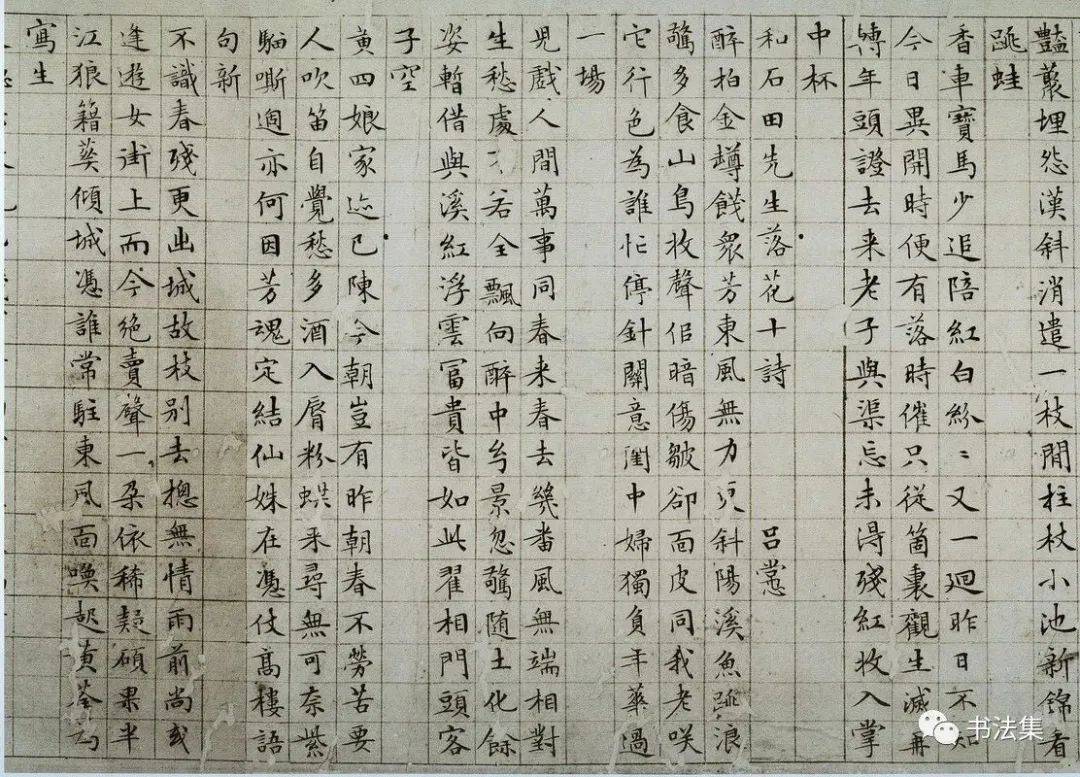 豔叢埋怨漢斜消遣一枝閒柱杖小池新錦看
跳蛙
香車寶馬少追陪紅白紛〻又一廻昨日不知
今日異開時便有落時催只從箇裏觀生滅再
轉年頭證去来老子與渠忘未得殘紅收入掌
中杯
和石田先生落花十詩 呂㦂
醉拍金罇餞衆芳東風無力斜陽溪魚跳浪
驚多食山鳥收聲佀暗傷皺卻面皮同我老咲
它行色為誰忙停針關意閨中婦獨負年華過
一場
児戲人間萬事同春来春去幾番風無端相對
生愁處不若全飄向醉中兮景忽驚随土化餘
姿暫借與溪紅浮雲冨貴皆如此翟相門頭客
子空
黄四娘家迹已陳今朝豈有昨朝春不勞苦要
人吹笛自覺愁多酒入脣粉蜨釆尋無可奈紫
騮嘶過亦何因芳魂定結仙姝在憑仗髙樓語
句新
不識春殘更出城故枝别去揔無情雨前尚或
逢遊女街上而今絶賣聲一朵依稀疑碩果半
江狼籍葬傾城憑誰常駐東風面喚起黄荃為
寫生
书法集